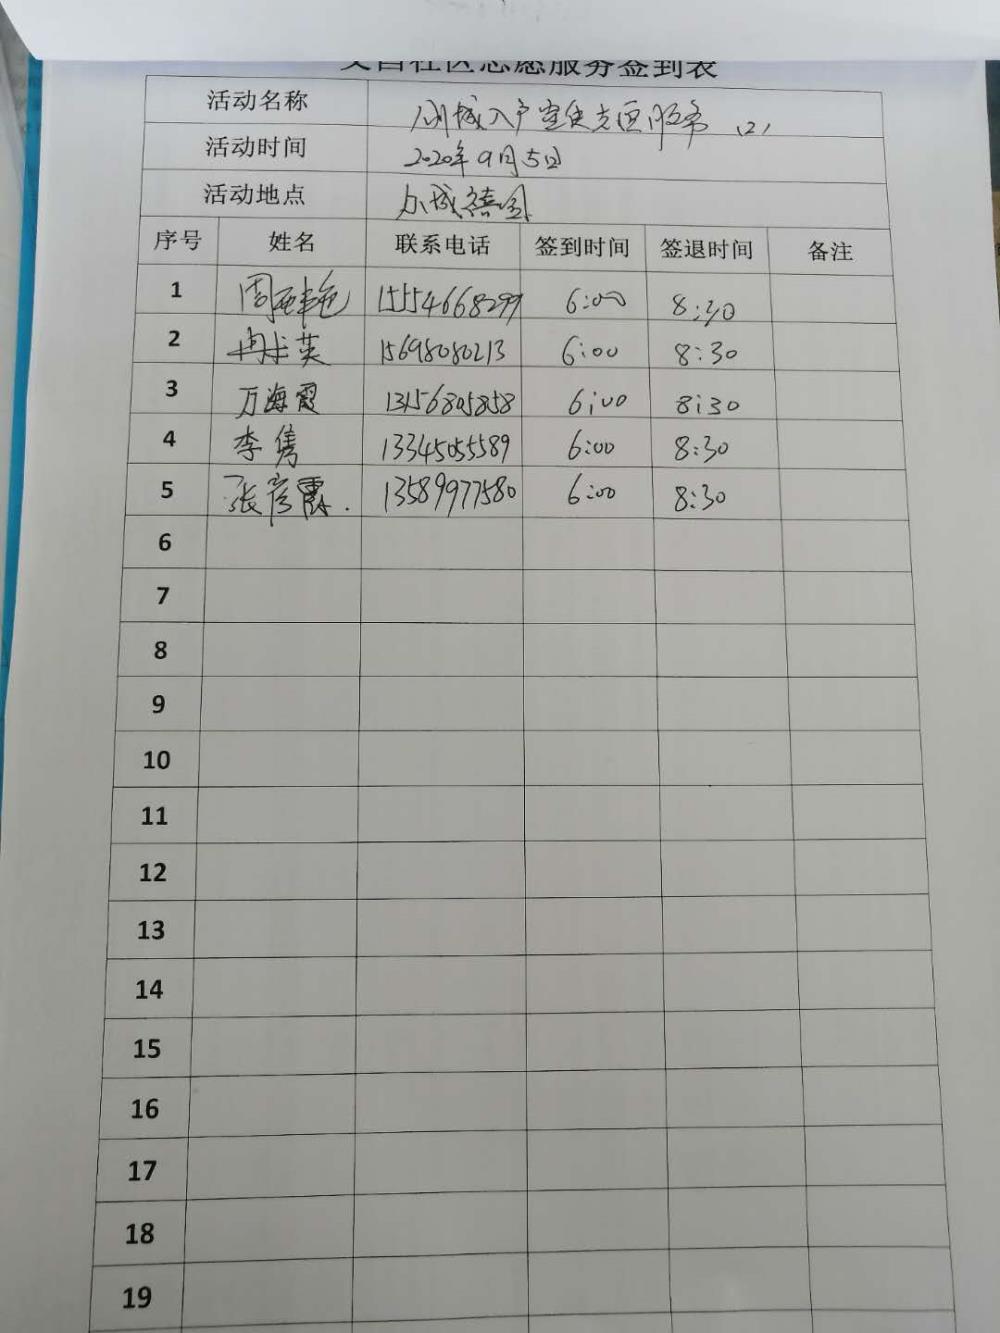 社区志愿服务签到表
活动名称 创城入户宣传志愿服务 (2)
活动时间 2020年9月5日
活动地点
序号 姓名 联系电话 签到时间 签退时间 备注
1 周 艳 15554668299 6:00 8:30
2 冉 英 15698080213 6:00 8:30
3 万海霞 13156805858 6:00 8:30
4 李隽 13345055589 6:00 8:30
5 张彦霞. 13589977580 6:00 8:30
6
7
8
9
10
11
12
13
14
15
16
17
18
19